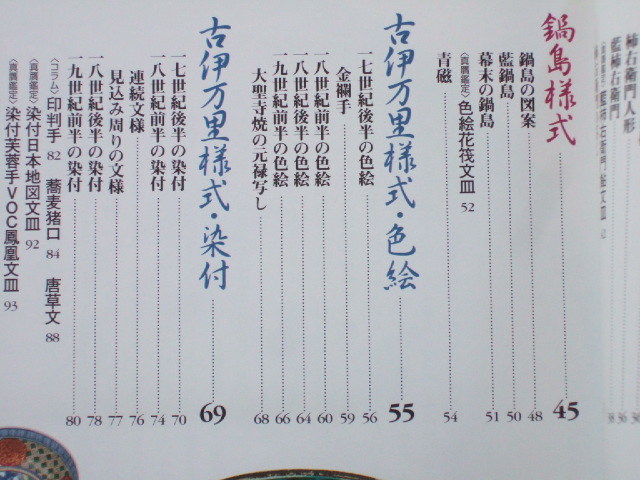 柿右衛門人形
36
藍柿右衛門
36
38
鍋島様式 45
鍋島の図案 48
藍鍋島 50
幕末の鍋島 51
〈真贋鑑定〉色絵花筏文皿 52
青磁 54
古伊万里様式・色絵 55
一七世紀後半の色絵 56
金襴手 59
一八世紀前半の色絵 60
一八世紀後半の色絵 64
一九世紀前半の色絵 66
大聖寺焼の元禄写し 68
古伊万里様式・染付 69
一七世紀後半の染付 70
一八世紀前半の染付 74
連続文様 76
見込み周りの文様 77
一八世紀後半の染付 78
一九世紀前半の染付 80
〈コラム〉印判手 82 蕎麦猪口 84 唐草文 88
〈真贋鑑定〉染付日本地図文皿 92
〈真贋鑑定〉染付芙蓉手VOC鳳凰文皿 93